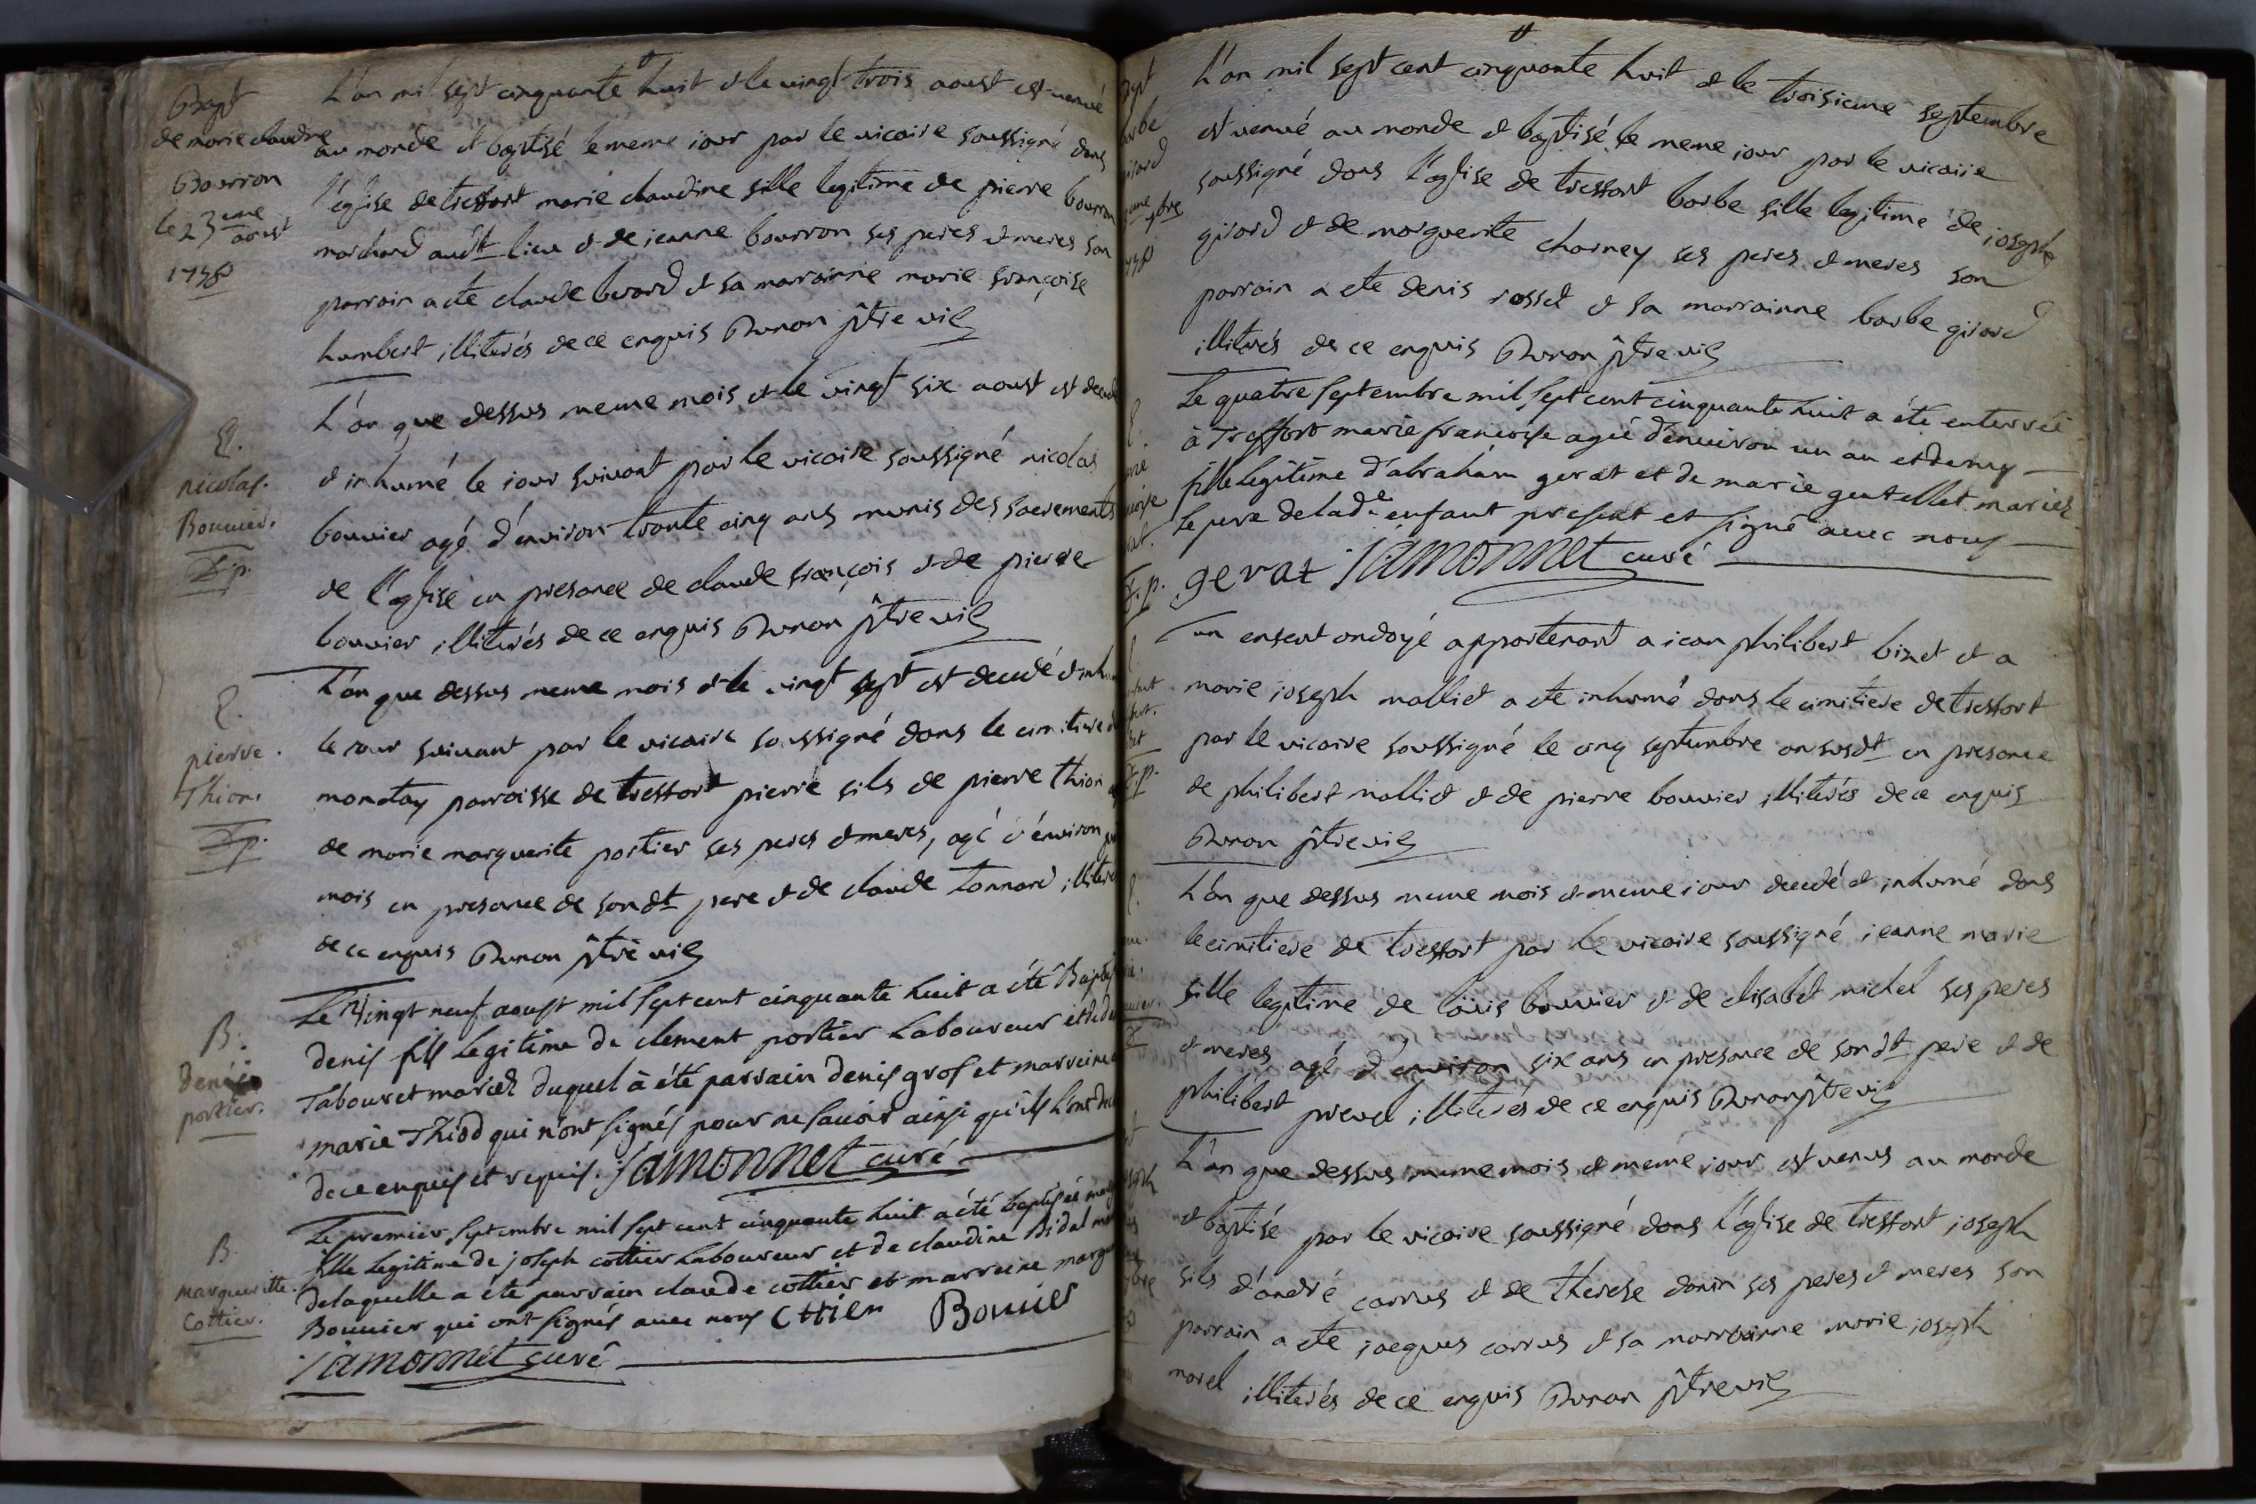 Bapt
de marie claudine
Bourron
le 23eme
aoust
1758
L'an mil sept cinquante huit et le vingt trois aoust est venué
au monde et baptisé le meme iour par le vicaire soussigné dans
l'église de treffort marie claudine fille legitime de pierre bourron
marchand audt lieu et de ieanne bourron ses peres et meres son
parrain a ete claude buard et sa marrainne marie françoise
humbert illiterés de ce enquis Duron ptre vic
E.
nicolas.
Bouvier.
D.p.
L'an que dessus meme mois et le vingt six aoust est decedé
et inhumé le iour suivant par le vicaire soussigné nicolas
bouvier agé d'environ trante cinq ans munis des sacrements
de l'eglise en presance de claude françois et de pierre
bouvier illiterés de ce enquis Duron ptre vic
E.
pierre.
Thion.
D.p.
L'an que dessus meme mois et le vingt sept est decedé et
le iour suivant par le vicaire soussigné dans le cimitiere
monetay parroisse de treffort pierre fils de pierre thion
de marie marguerite portier ses peres et meres, agé d'environ
mois en presance de sondt pere et de claude tonnard illiterés
de ce enquis Duron ptre vic
B.
denis
portier.
Le Vingt neuf aoust mil sept cent cinquante huit a été
denis fils legitime de clement portier Laboureur et de
Tabouret mariés duquel à été parrain denis gros et marreine
marie Thiod qui n'ont signés pour ne savoir ainsi qu'ils l'ont
de ce enquis et requis. Jamonnet curé
B.
marguerite.
Cottier.
Le premier septembre mil sept cent cinquante huit a été baptisée
fille legitime de joseph cottier Laboureur et de claudine Bidal
de laquelle a été parrain claude cottier et marreine
Bouvier qui ont signés avec nous Cttier Bouvier
Jamonnet curé
L'an mil sept cent cinquante huit et le troisieme septembre
est venué au monde et baptisé le meme iour par le vicaire
soussigné dans l'eglise de treffort barbe fille legitime de ioseph
girard et de marguerite charney ses peres et meres son
parrain a ete denis rosset et sa marrainne barbe girard
illiterés de ce enquis Duron ptre vic
Le quatre septembre mil sept cent cinquante huit a été enterrée
à Treffort marie françoise agée d'environ un an et demy
fille legitime d'abraham gerat et de marie gentellet mariés
Le pere de lade enfant present et signé avec nous
gerat Jamonnet curé
un enfant ondoyé appartenant a iean philibert bizet et a
marie ioseph malliet a ete inhumé dans le cimitiere de treffort
par le vicaire soussigné le cinq septembre an susdt en presance
de philibert malliet et de pierre bouvier illiterés de ce enquis
Duron ptre vic
L'an que dessus meme mois et meme iour decedé et inhumé dans
le cimitiere de treffort par le vicaire soussigné ieanne marie
fille legitime de loüis bouvier et de elisabet michel ses peres
et meres agé d'environ six ans en presance de sondt pere et de
philibert illiterés de ce enquis Duron ptre vic
L'an que dessus meme mois et meme iour est venus au monde
et baptisé par le vicaire soussigné dans l'eglise de treffort ioseph
fils d'andré carrus et de therese donin ses peres et meres son
parrain a ete iacques carrus et sa marrainne marie ioseph
morel illiterés de ce enquis Duron ptre vic